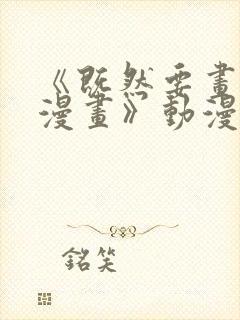 《既然要畫
漫畫》動漫
銘笑